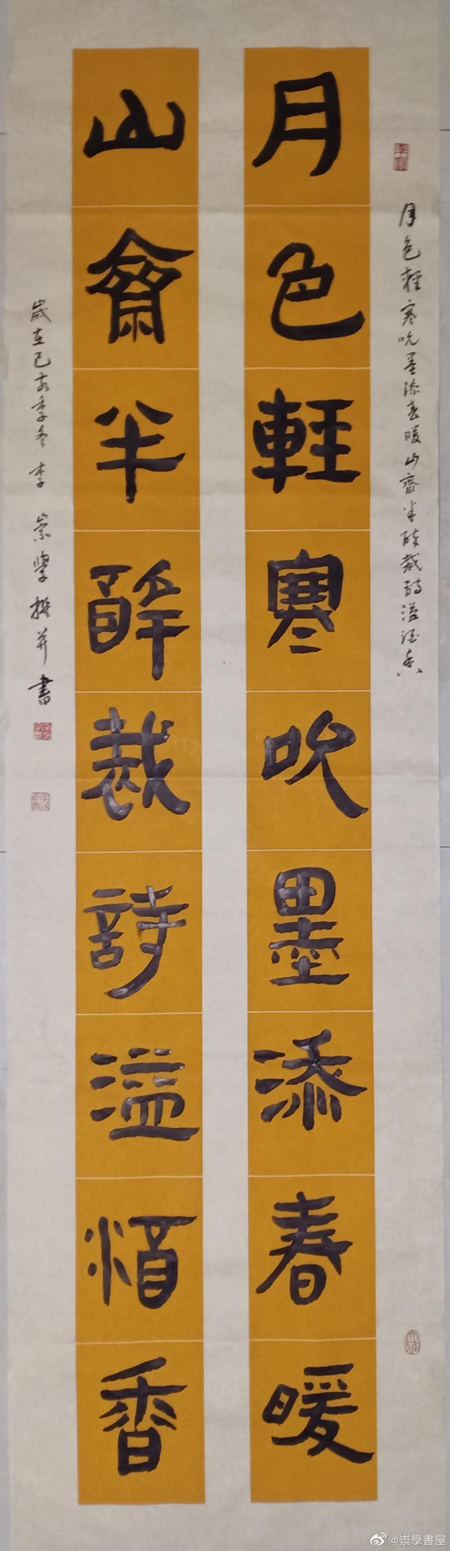 月色輕寒吹墨添春暖山齋半醉裁詩溢酒香
月色輕寒吹墨添春暖
山齋半醉裁詩溢酒香
歲在己亥季冬李崇學撰并書
@崇學書屋